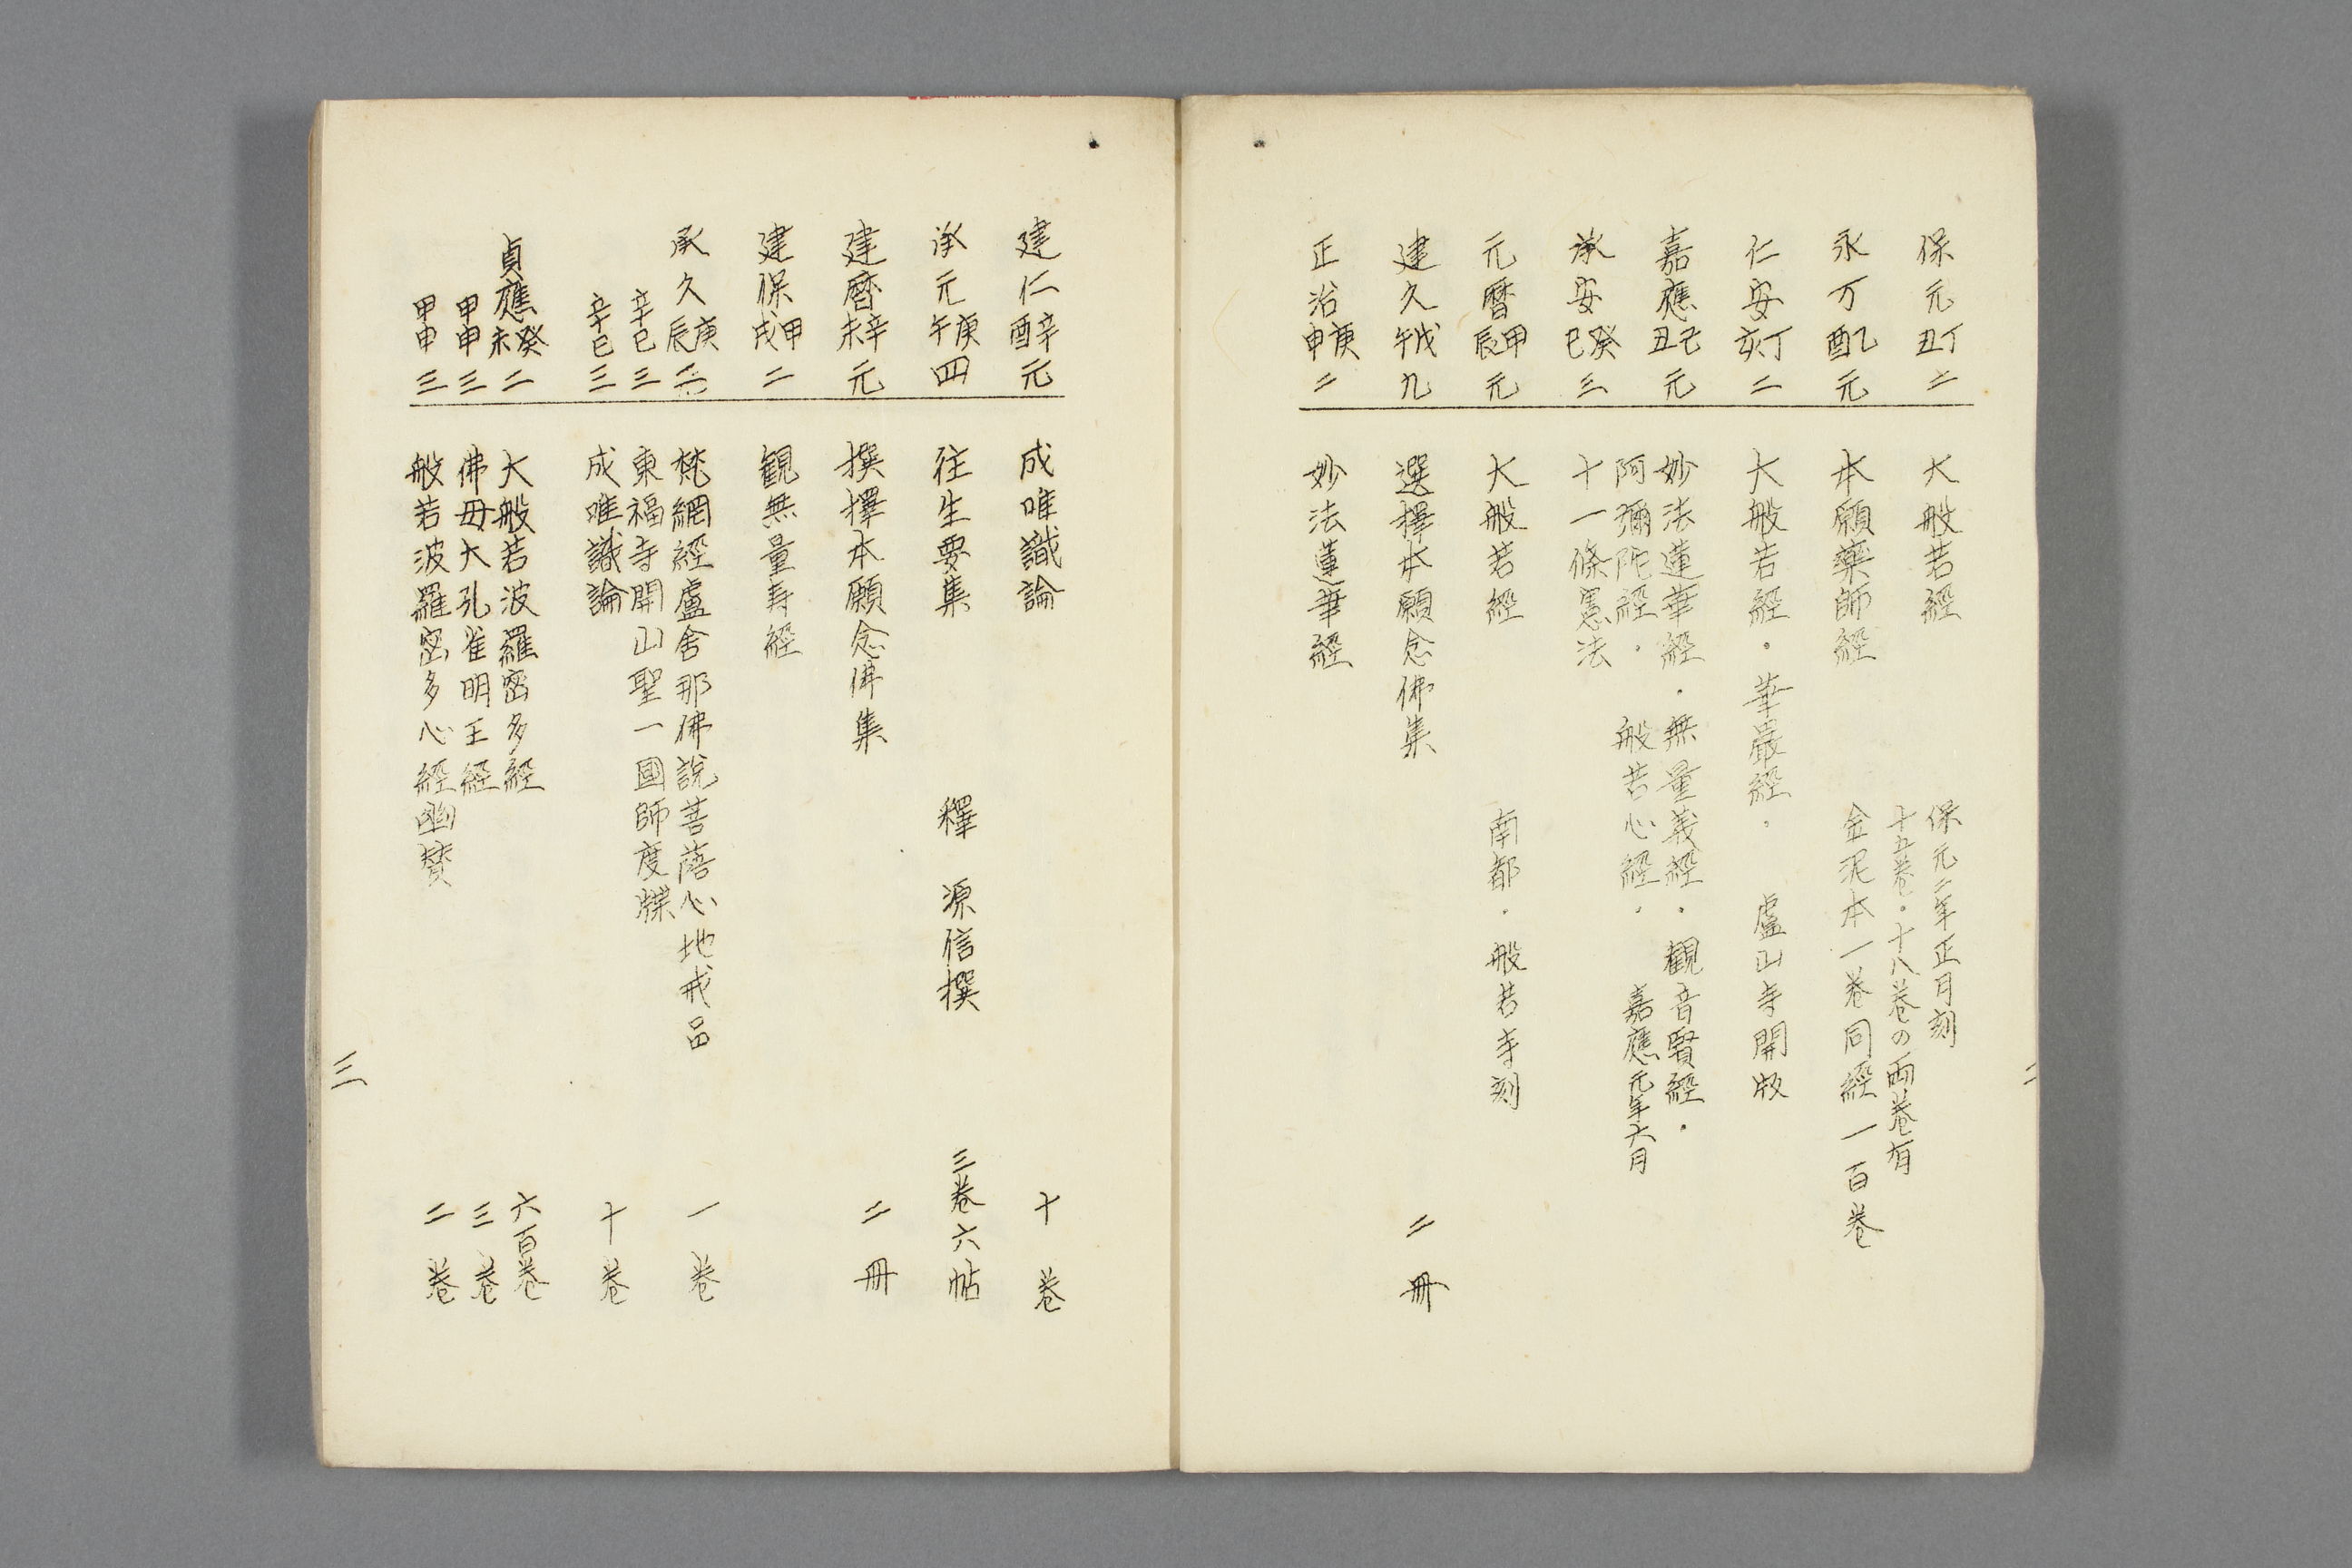 保元丁丑二 大般若経 保元二年正月刻
十五巻・十八巻の両巻有
永万乙酉元 本願薬師経 金泥本一巻同経一百巻
仁安丁亥二 大般若経・華嚴経・盧山寺開版
嘉應己丑元 妙法蓮華経・無量義経・観音賢経・
阿彌陀経・般若心経・嘉應元年六月
承安癸巳三 十一條憲法
元暦甲辰元 大般若経 南都・般若寺刻
建久戊午九 選擇本願念佛集 二冊
正治庚申二 妙法蓮華経
二
建仁辛酉元 成唯識論 十巻
承元庚午四 往生要集 釋源信撰 三巻六帖
建暦辛未元 撰擇本願念佛集 二冊
建保甲戌二 観無量寿経
承久庚辰二 梵網経盧舎那佛説菩薩心地戒品 一巻
辛巳三 東福寺開山聖一國師度牒
辛巳三 成唯識論 十巻
貞應癸未二 大般若波羅密多経 六百巻
甲申三 佛母大孔雀明王経 三巻
甲申三 般若波羅密多心経幽賛 二巻
三